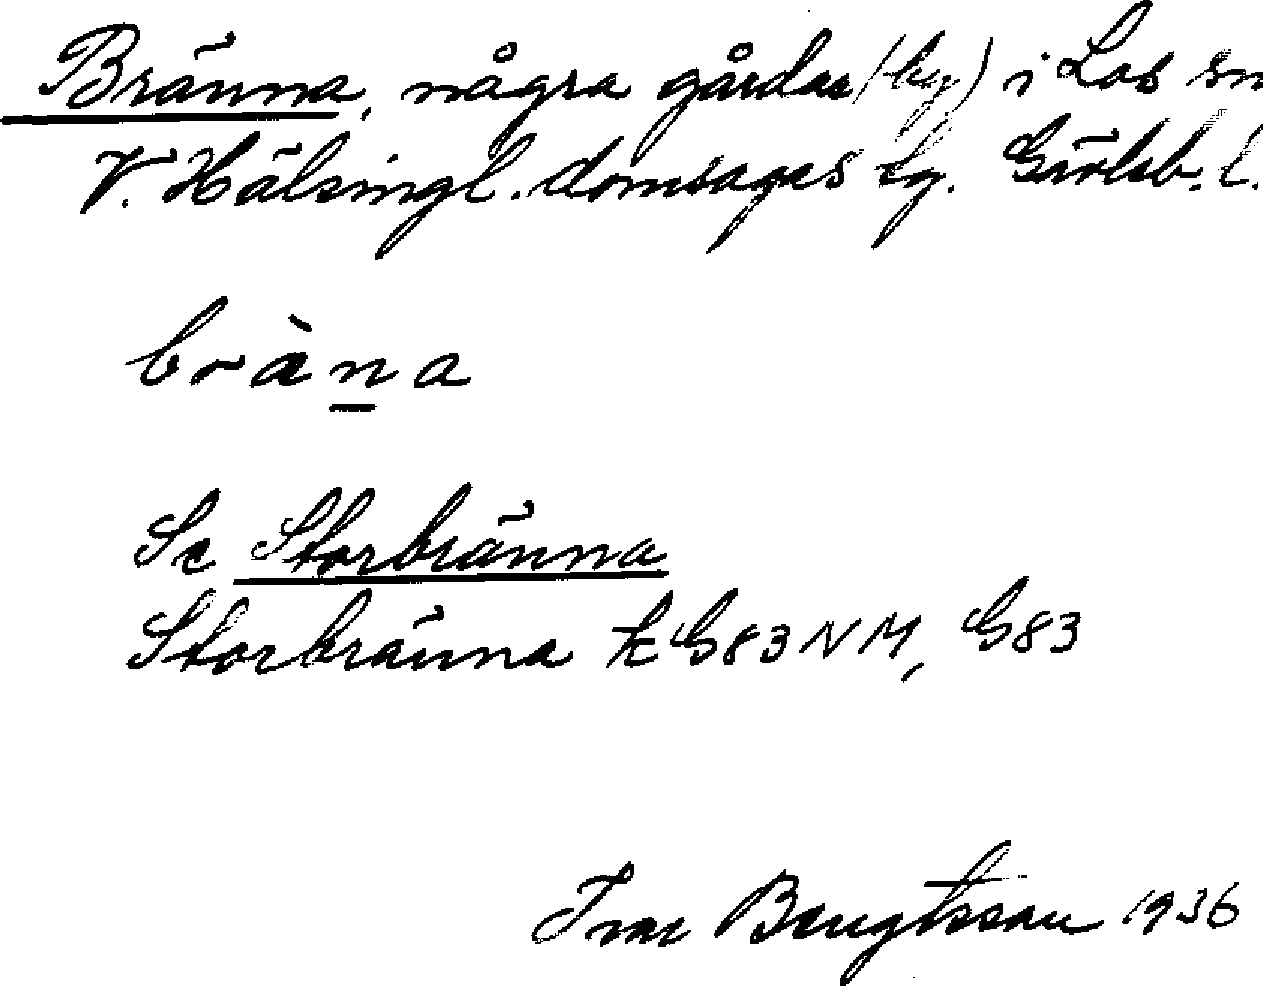 Bränna, några gårdar (by) i Los sn
V. Hälsingl. domsagas tg. Gävleb. l.
bràna
Se Storbränna
Storbränna k G83NM, G83
Ivar Bengtsson 1936